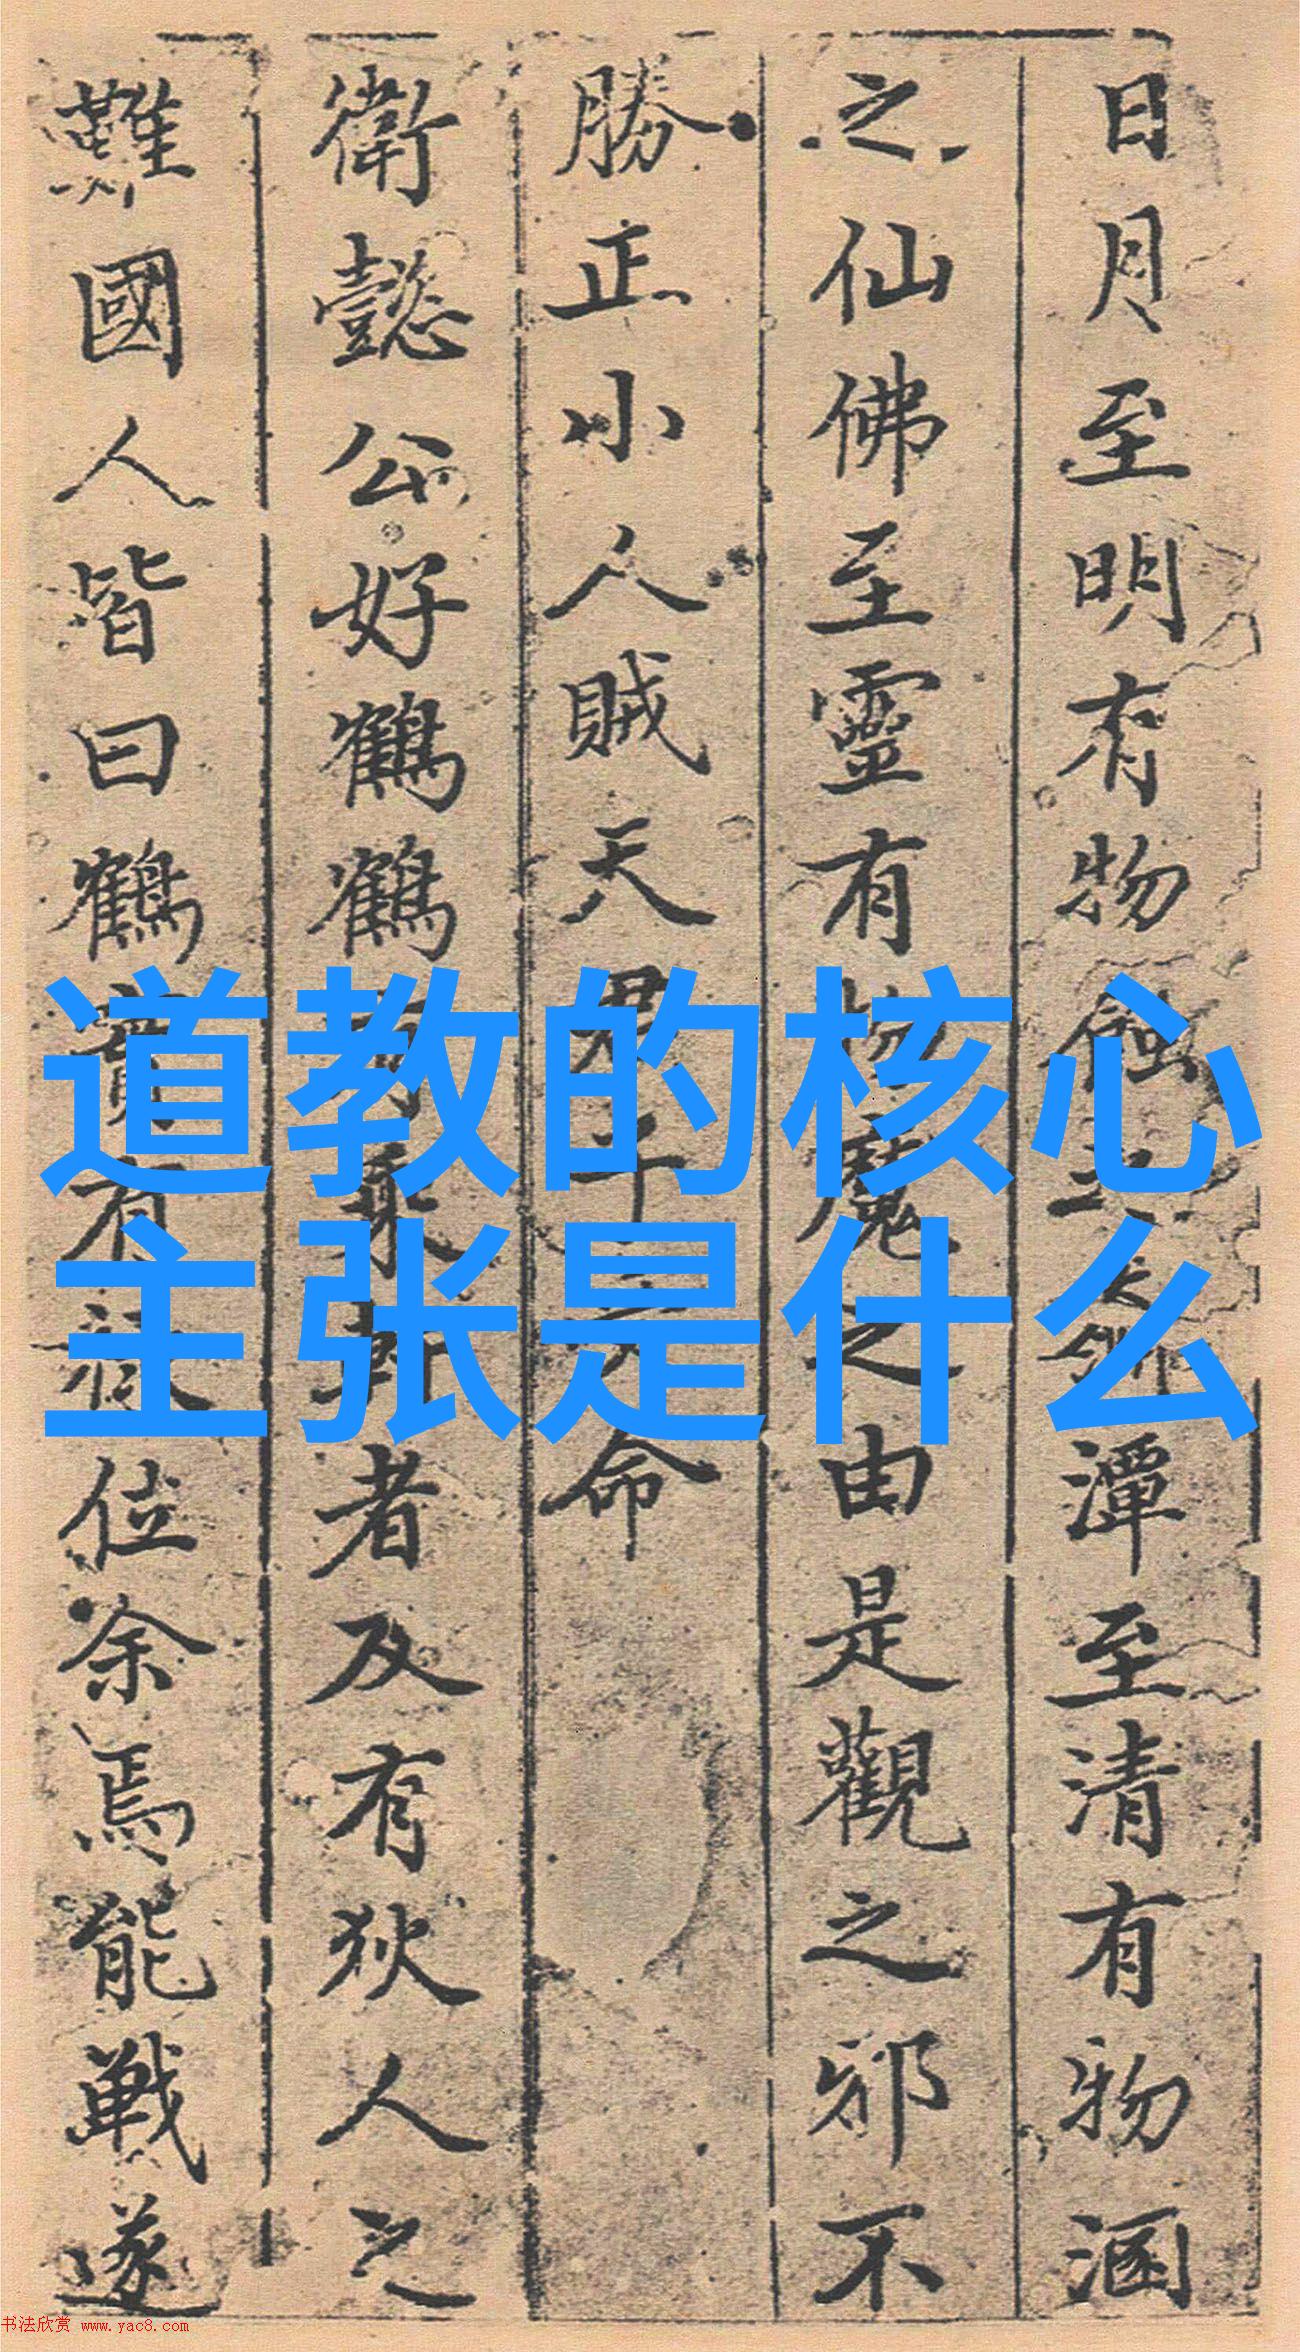 道教的核心
主张是什么
日月至明有物蝕之潭至清有物涵
之仙佛至靈有物魔之由是觀之邪不
勝正小人賊天君子命
衛懿公好鶴鶴有乘軒者及有狄人之
難國人皆曰鶴實有祿位余焉能戰遂
书法欣赏 www.yac8.com